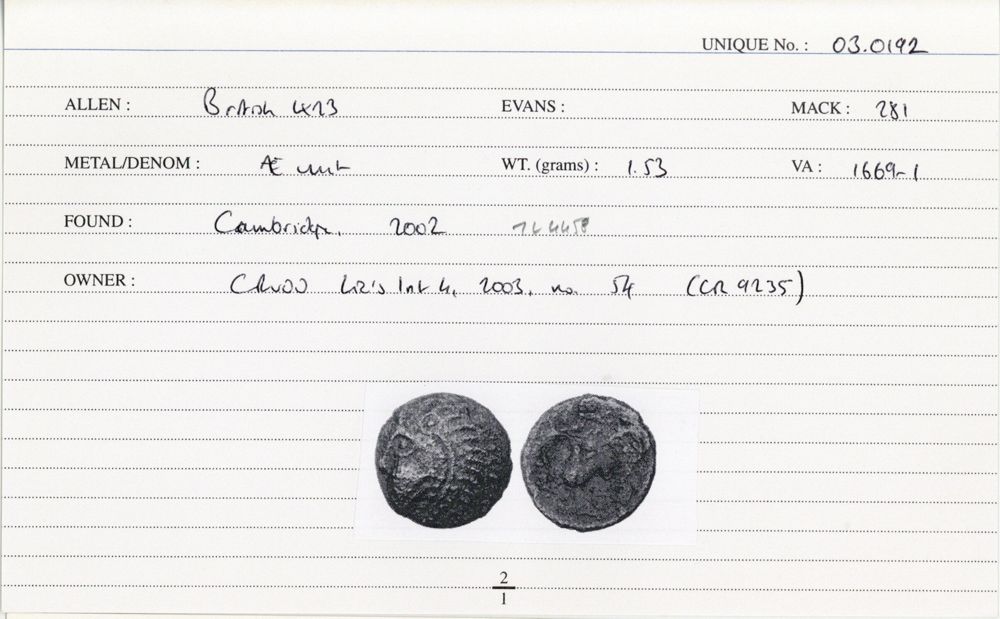 UNIQUE No. : 03.0192
ALLEN : British LX13 EVANS : MACK : 281
METAL/DENOM : Æ unit WT. (grams) : 1.53 VA : 1669-1
FOUND : Cambridge, 2002
OWNER : 2003, no. 54 (CR 9235)
2
1